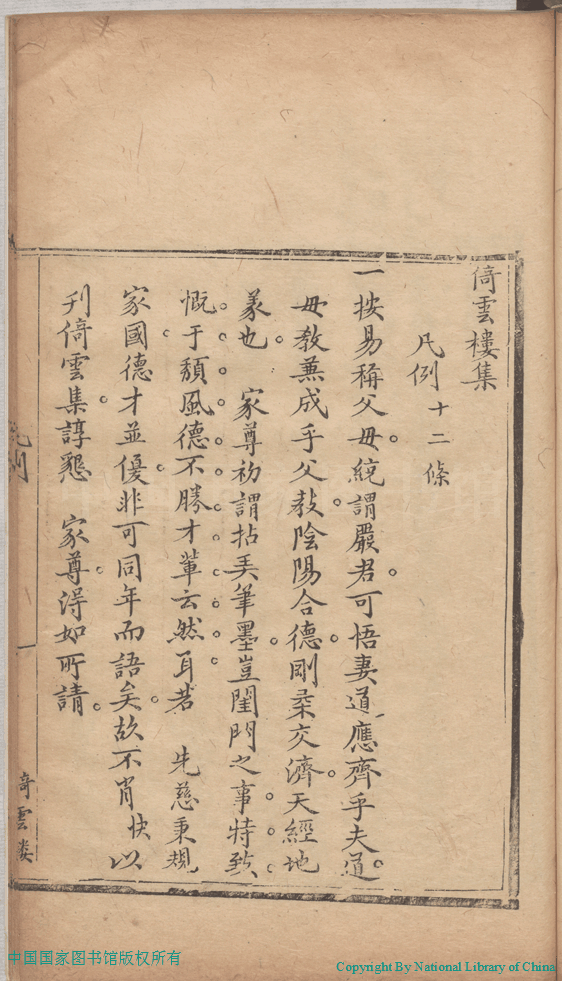 倚雲樓集
凡例十二條
一按易稱父母統謂嚴君可悟妻道應齊乎夫道
母教兼成乎父教陰陽合德剛柔交濟天經地
義也 家尊初謂拈美筆墨豈閨門之事特致
慨于頹風德不勝才輩云然耳若 先慈秉規
家國德才並優非可同年而語矣故不肖快以
刊倚雲集諄懇 家尊得如所請
凡例
一
倚雲樓
中国国家图书馆版权所有
Copyright By National Library of China